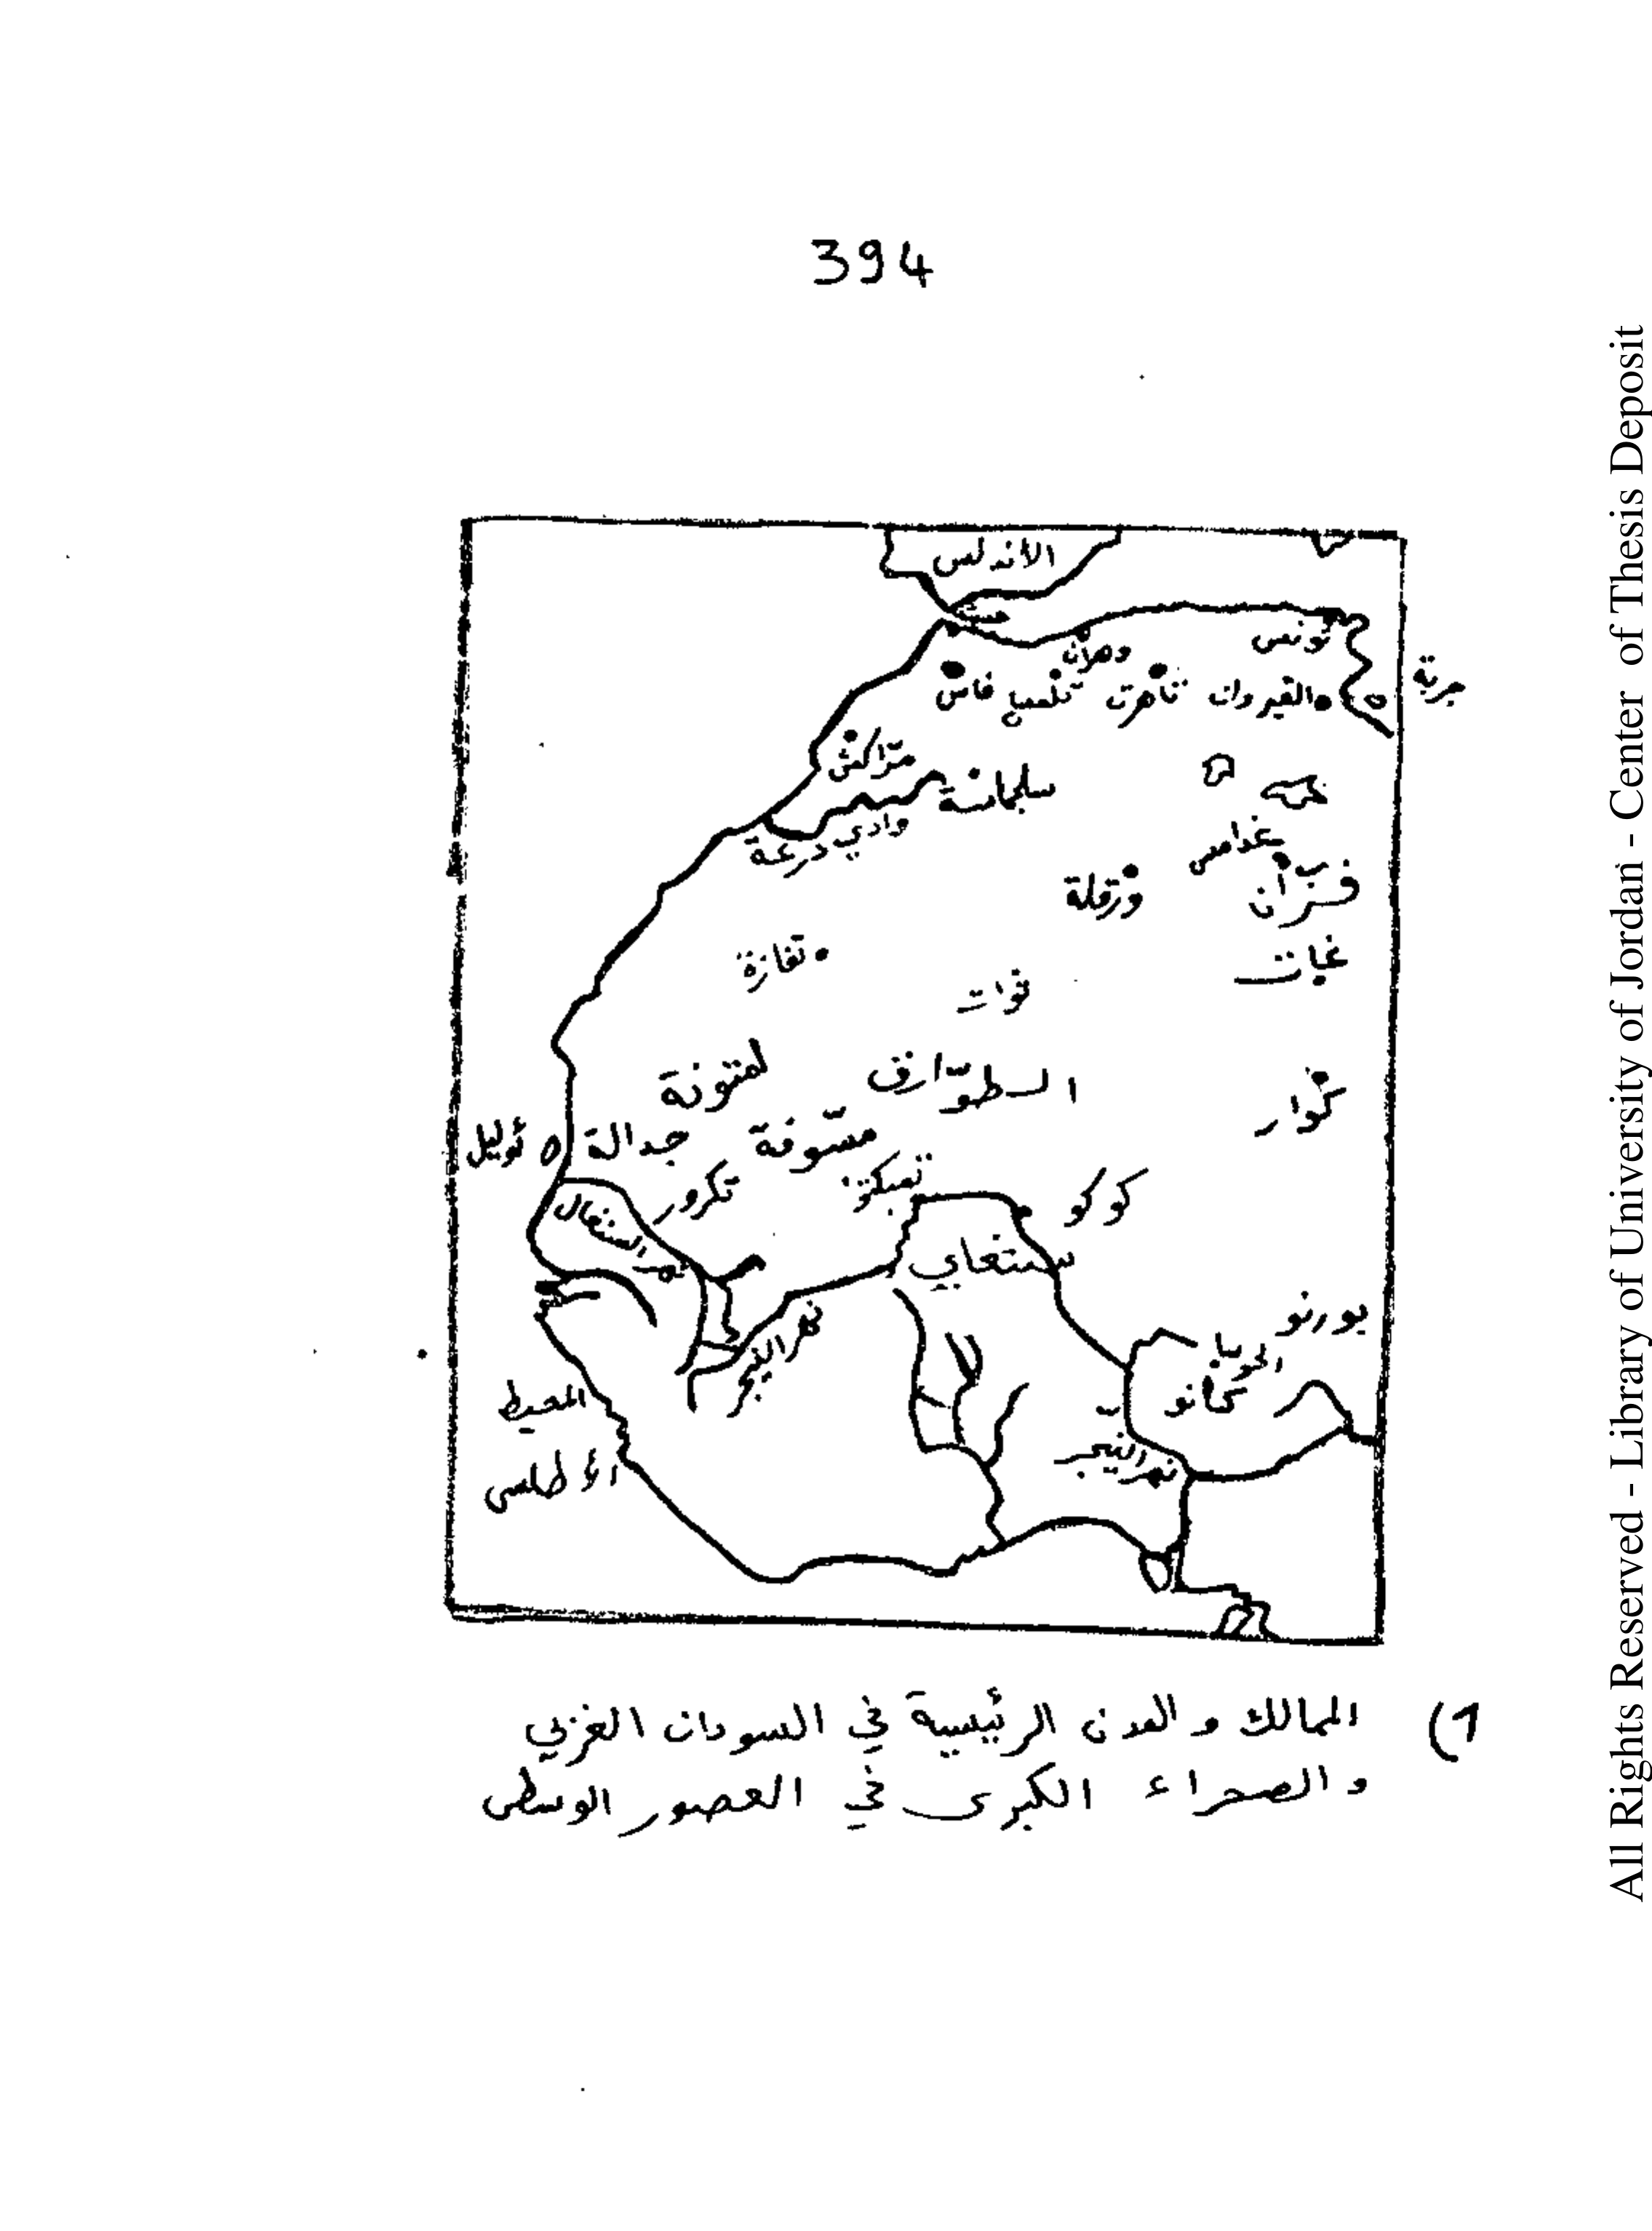 394
الأندلس
سبتة
تونس
وهران
جربة
القيروان
تاهرت
تلمسان
فاس
مرّاكش
سلجماسة
وادي درعة
غدامس
فزان
ورقلة
غات
تغازة
توات
لمتونة
الطوّارق
كوار
أوليل
جدالة
مسّوفة
تمبكتو
تكرور
كوكو
نهر السنغال
سنغاي
بورنو
نهر النيجر
الحوسا
كانو
المحيط
الأطلسي
نهر النيجر
1) الممالك و المدن الرئيسية في السودان الغربي
و الصحراء الكبرى في العصور الوسطى
All Rights Reserved - Library of University of Jordan - Center of Thesis Deposit